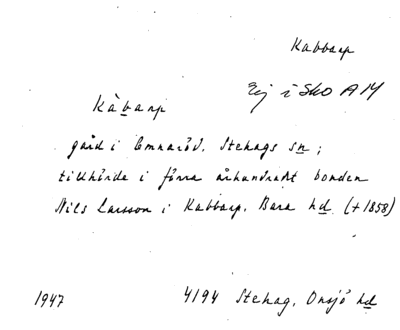 Kabbarp
Ej i Sko AM
Kàbarp
gård i Emnaröd, Stehags sn;
tillhörde i förra århundradet bonden
Nils Larsson i Kabbarp, Bara hd (+1858)
1947 4194 Stehag, Onsjö hd